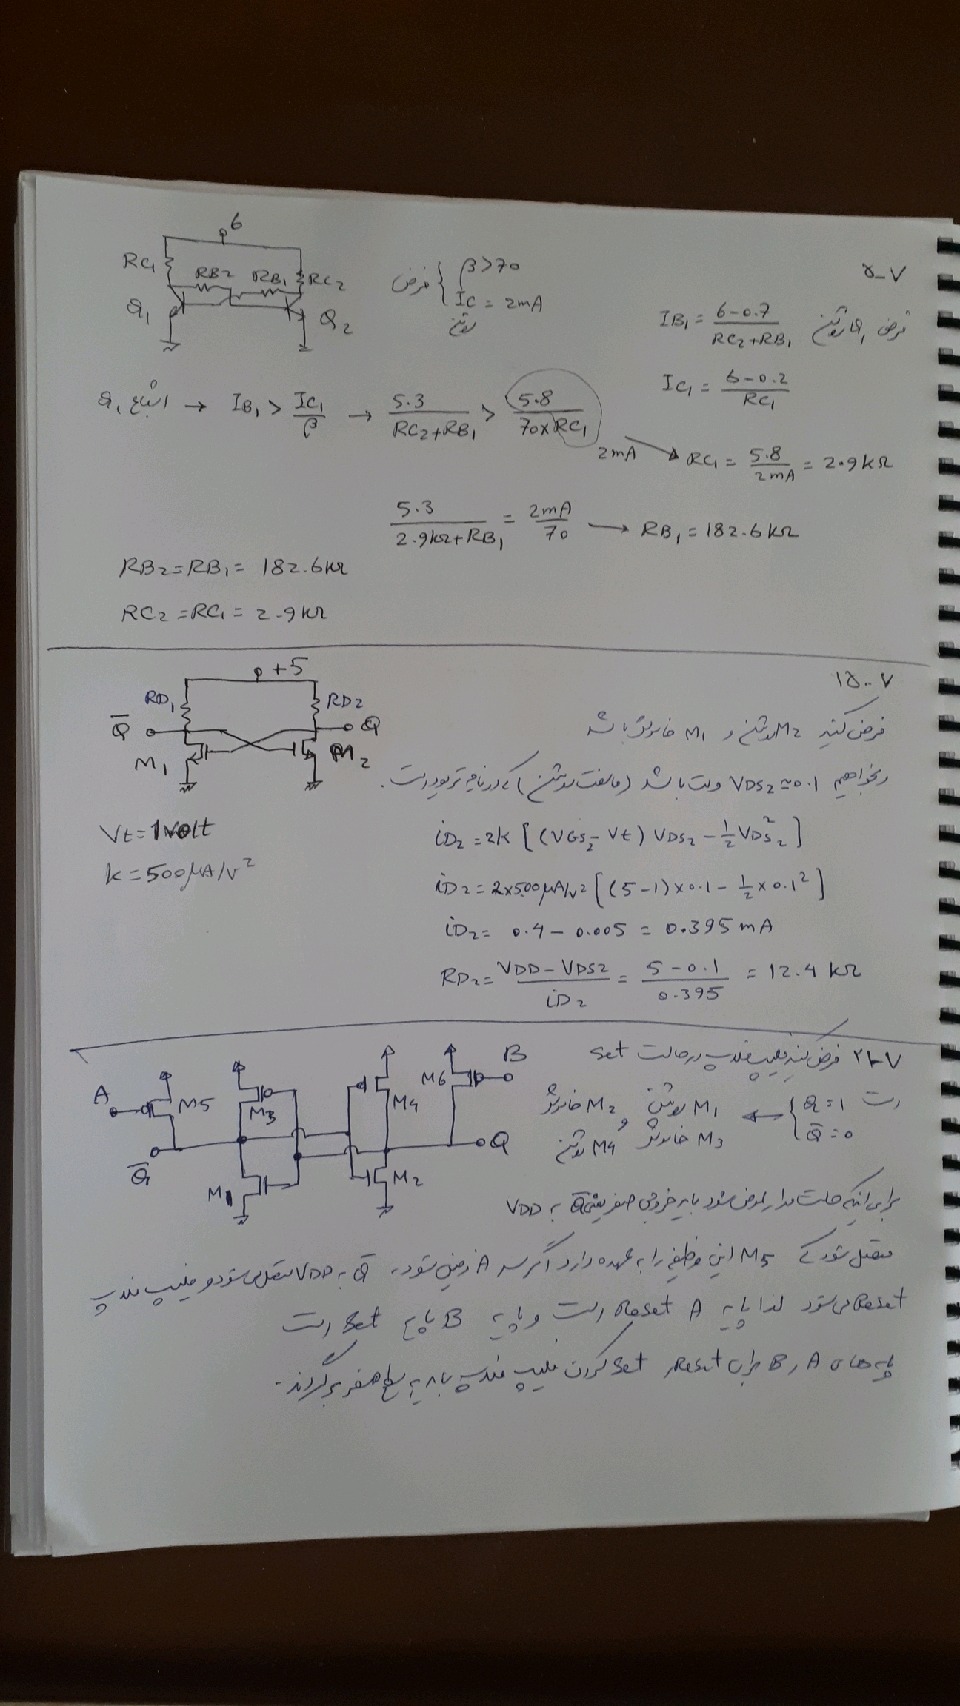 ۷-۵
6
RC1 RB2 RB1 RC2
Q1 Q2
فرض { β>70
IC = 2mA
روشن
فرض Q1 روشن IB1 = 6-0.7 / RC2+RB1
IC1 = 6-0.2 / RC1
اشباع Q1 → IB1 > IC1/β → 5.3 / RC2+RB1 > 5.8 / 70×RC1
2mA → RC1 = 5.8 / 2mA = 2.9kΩ
5.3 / 2.9kΩ+RB1 = 2mA / 70 → RB1 = 182.6kΩ
RB2=RB1= 182.6kΩ
RC2=RC1= 2.9kΩ
۷-۱۵
+5
RD1 RD2
Q̄ Q
M1 M2
فرض کنید M2 روشن و M1 خاموش باشد
بخواهیم VDS2≈0.1 ولت باشد (حالت روشن) که در ناحیه تریود است.
Vt=1volt
k=500µA/V²
iD2=2k[(VGS2-Vt)VDS2-½VDS2²]
iD2=2×500µA/V²[(5-1)×0.1-½×0.1²]
iD2= 0.4-0.005 = 0.395mA
RD2= VDD-VDS2 / iD2 = 5-0.1 / 0.395 = 12.4kΩ
۷-۲۱ فرض کنید فلیپ فلاپ در حالت Set
است { Q=1 Q̄=0 ← M1 روشن و M2 خاموش
M3 خاموش M4 روشن
A M5 M3 M4 M6 B
Q̄ Q
M1 M2
برای اینکه حالت مدار عوض شود باید خروجی صفر یعنی Q̄ به VDD
متصل شود که M5 این وظیفه را به عهده دارد اگر A زمین شود، Q̄ به VDD متصل می شود و فلیپ فلاپ
Reset می شود لذا پایه A Reset است و پایه B پایه Set است
پایه های A و B برای Reset و Set کردن فلیپ فلاپ باید به سطح صفر برگردند.